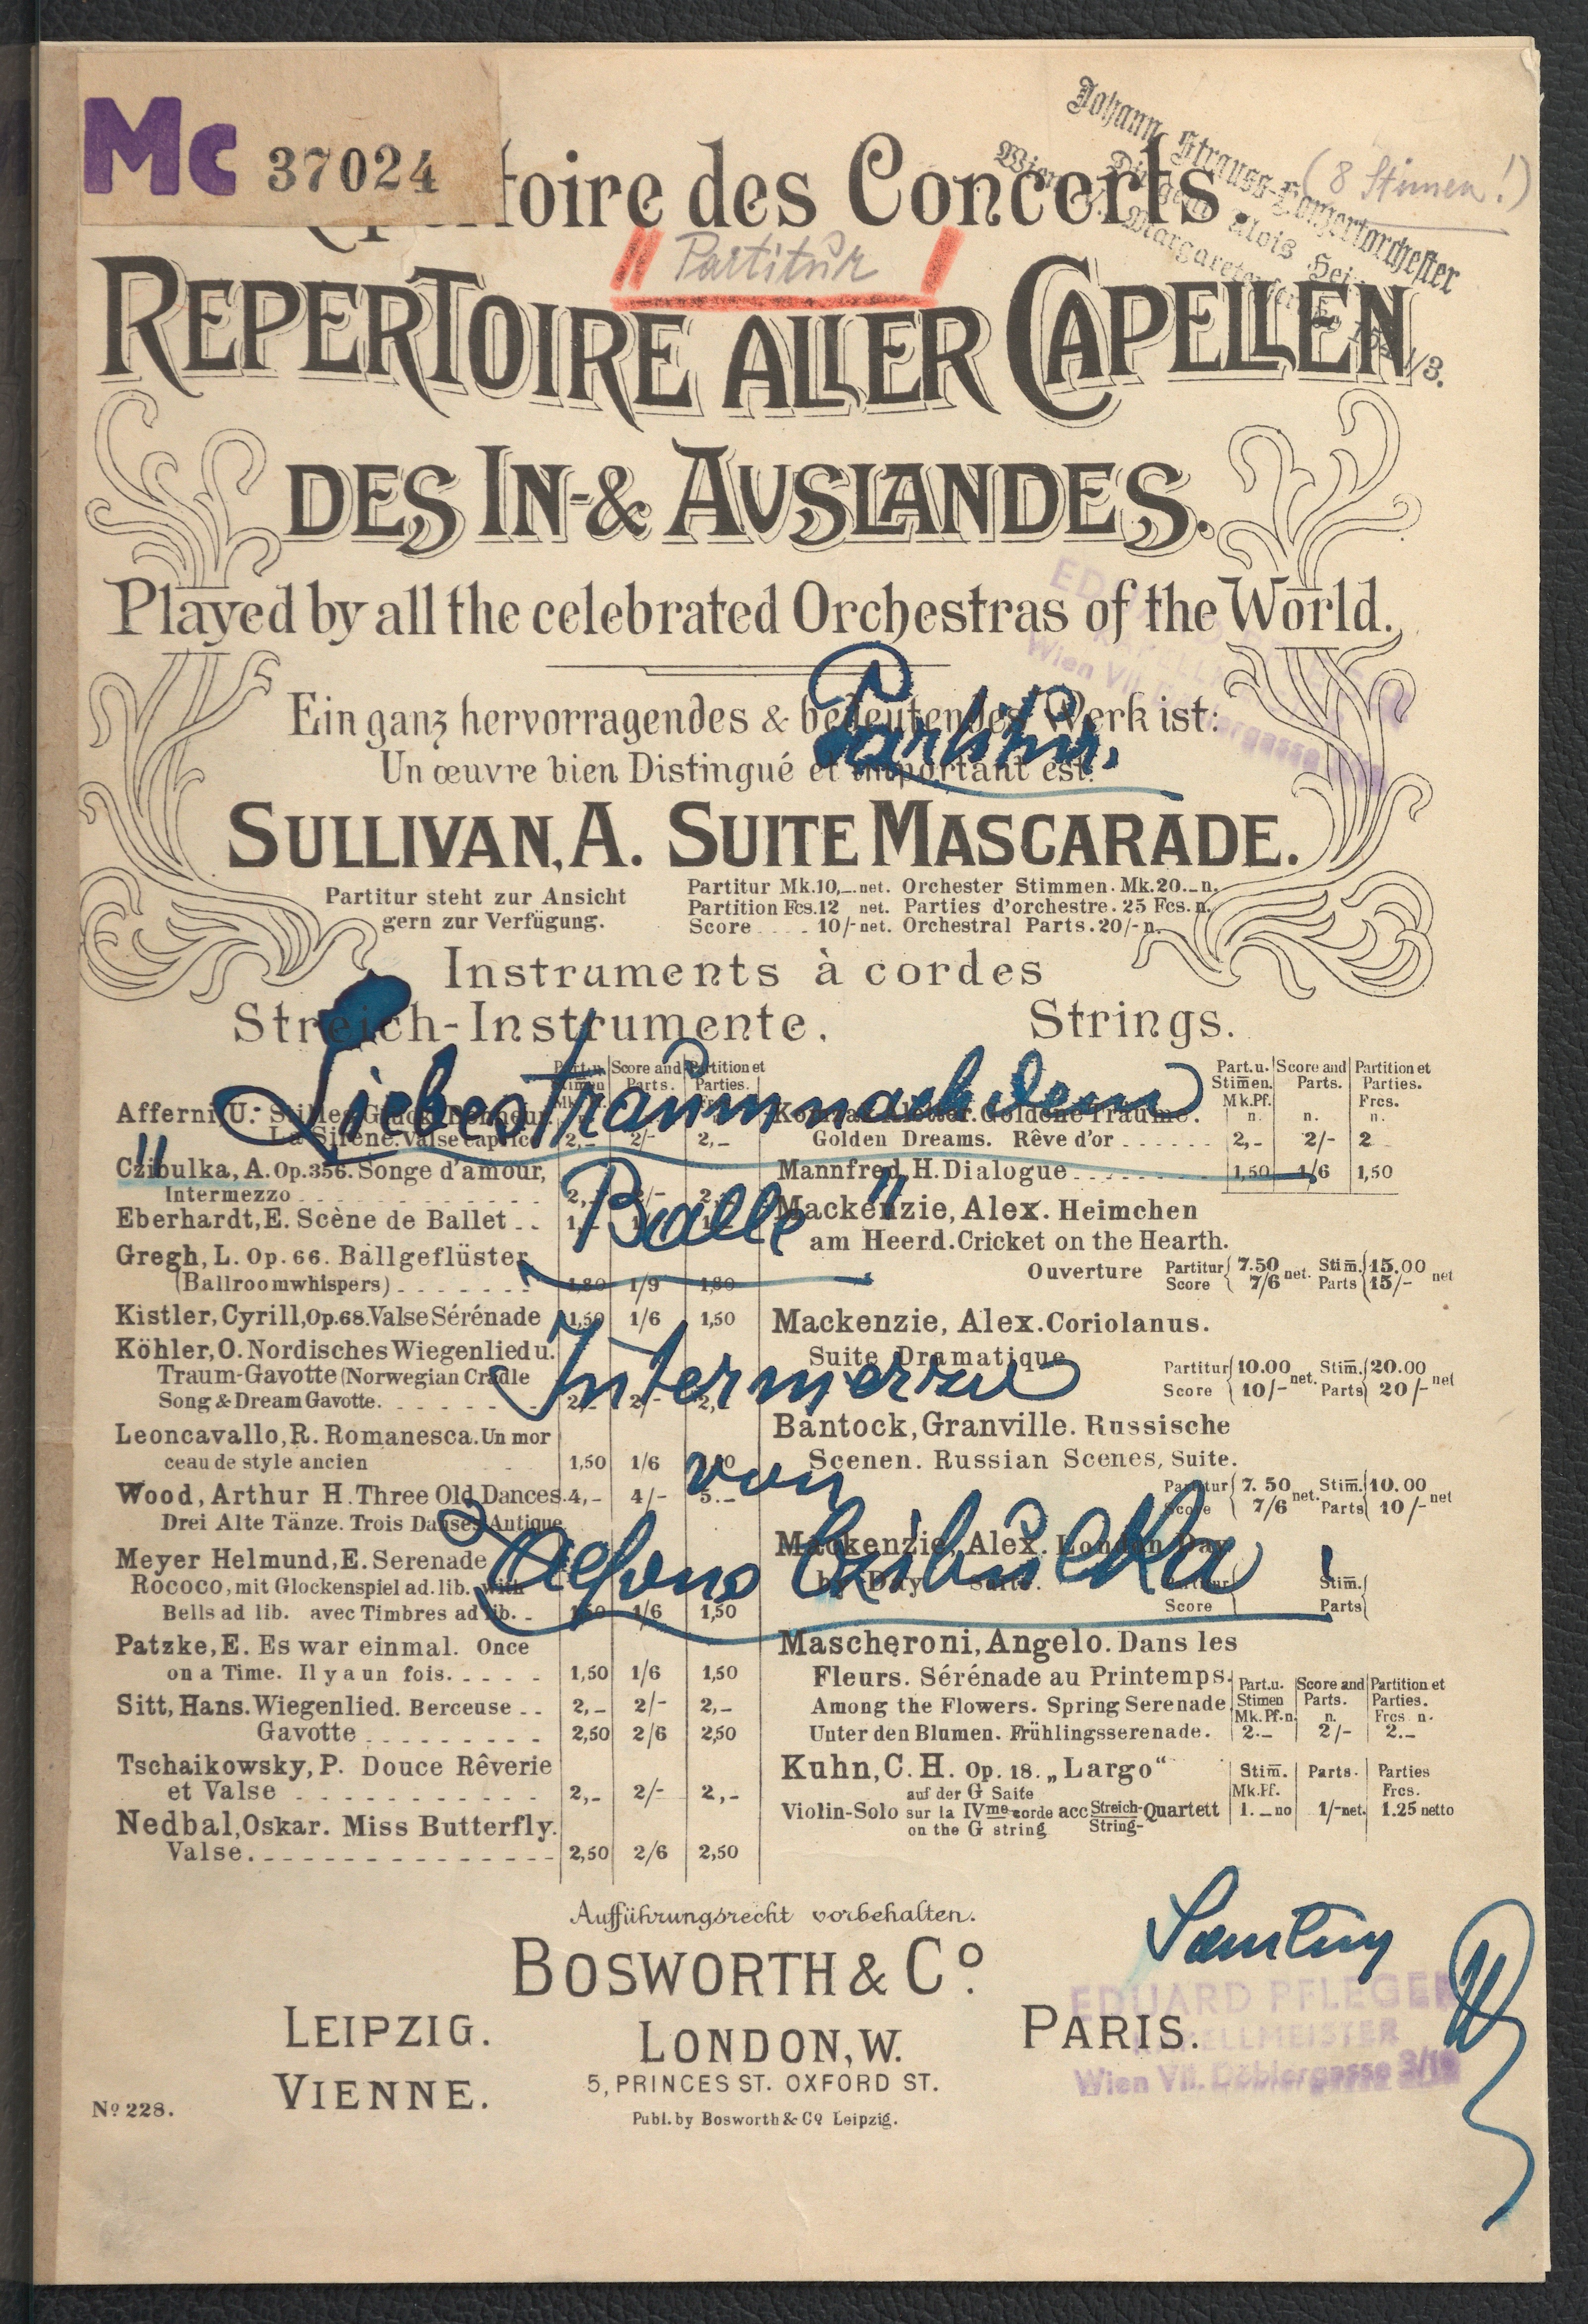 Mc 37024
toire des Concerts.
Johann Strauss-Konzertorchester
Dirigent Alois
Wien
(8 Stimmen!)
Partitur
REPERTOIRE ALLER CAPELLEN
DES IN-& AUSLANDES.
Played by all the celebrated Orchestras of the World.
Ein ganz hervorragendes & bedeutendes Werk ist:
Partitur.
Un œuvre bien Distingué et important est:
SULLIVAN, A. SUITE MASCARADE.
Partitur steht zur Ansicht
gern zur Verfügung.
Partitur Mk.10,_ net. Orchester Stimmen. Mk.20._ n.
Partition Fcs.12 net. Parties d'orchestre. 25 Fcs. n.
Score . . . . 10/- net. Orchestral Parts. 20/- n.
Instruments à cordes
Streich-Instrumente. Strings.
"Liebestraum nach dem
Balle"
Intermezzo
von
Alfons Czibulka!
Part.u. Stimen Mk.Pf. n. Score and Parts. n. Partition et Parties. Frcs. n.
Afferni, U.
La Sirène. Valse caprice 2,- 2/- 2,-
Czibulka, A. Op. 356. Songe d'amour,
Intermezzo
Eberhardt, E. Scène de Ballet
Gregh, L. Op. 66. Ballgeflüster
(Ballroomwhispers) 1,80 1/9 1,80
Kistler, Cyrill, Op. 68. Valse Sérénade 1,50 1/6 1,50
Köhler, O. Nordisches Wiegenlied u.
Traum-Gavotte (Norwegian Cradle
Song & Dream Gavotte.
Leoncavallo, R. Romanesca. Un mor
ceau de style ancien 1,50 1/6
Wood, Arthur H. Three Old Dances. 4,- 4/- 5.-
Drei Alte Tänze. Trois Danses Antique
Meyer Helmund, E. Serenade
Rococo, mit Glockenspiel ad. lib. with
Bells ad lib. avec Timbres ad lib. 1,50 1/6 1,50
Patzke, E. Es war einmal. Once
on a Time. Il y a un fois. 1,50 1/6 1,50
Sitt, Hans. Wiegenlied. Berceuse 2,- 2/- 2,-
Gavotte 2,50 2/6 2,50
Tschaikowsky, P. Douce Rêverie
et Valse 2,- 2/- 2,-
Nedbal, Oskar. Miss Butterfly.
Valse. 2,50 2/6 2,50
Goldene Träume.
Golden Dreams. Rêve d'or 2,- 2/- 2
Mannfred, H. Dialogue 1,50 1/6 1,50
Mackenzie, Alex. Heimchen
am Heerd. Cricket on the Hearth.
Ouverture Partitur 7.50 net. Stim. 15.00 net
Score 7/6 Parts 15/-
Mackenzie, Alex. Coriolanus.
Suite Dramatique
Partitur 10.00 net. Stim. 20.00 net
Score 10/- Parts 20/-
Bantock, Granville. Russische
Scenen. Russian Scenes, Suite.
Partitur 7.50 net. Stim. 10.00 net
Score 7/6 Parts 10/-
Mackenzie, Alex. London Day
by Day Suite. Partitur Stim.
Score Parts
Mascheroni, Angelo. Dans les
Fleurs. Sérénade au Printemps.
Among the Flowers. Spring Serenade
Unter den Blumen. Frühlingsserenade.
Part.u. Stimen Mk. Pf. n. Score and Parts. n. Partition et Parties. Frcs n.
2.- 2/- 2.-
Kuhn, C. H. Op. 18. „Largo“
auf der G Saite
Violin-Solo sur la IVme corde acc Streich-Quartett
on the G string String-
Stim. Mk.Pf. Parts. Parties Frcs.
1._no 1/-net. 1.25 netto
Aufführungsrecht vorbehalten.
BOSWORTH & Co.
LEIPZIG. LONDON, W. PARIS.
VIENNE. 5, PRINCES ST. OXFORD ST.
No 228. Publ. by Bosworth & Co Leipzig.
EDUARD PFLEGER
KAPELLMEISTER
Wien VII. Döblergasse 3/19